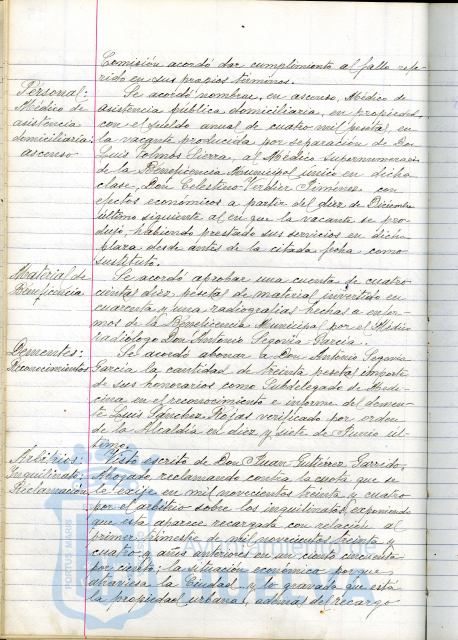 Comisión acordó dar cumplimiento al fallo refe-
rido en sus propios términos.
Personal:
Médico de
asistencia
domiciliaria:
ascenso
Se acordó nombrar, en ascenso, Médico de
asistencia pública domiciliaria, en propiedad,
con el sueldo anual de cuatro mil pesetas, en
la vacante producida por separación de Don
Luis Sierra, al Médico Supernumerario
de la Beneficencia Municipal único en dicha
clase, Don Celestino Verdier Jiménez, con
efectos económicos a partir del diez de Diciembre
último siguiente al en que la vacante se pro-
dujo, habiendo prestado sus servicios en dicha
plaza desde antes de la citada fecha como
sustituto.
Material de
Beneficencia
Se acordó aprobar una cuenta de cuatro-
cientas diez pesetas de material invertido en
cuarenta y una radiografías hechas a enfer-
mos de la Beneficencia Municipal por el Médico
radiólogo Don Antonio Segovia García.
Dementes:
Reconocimientos
Se acordó abonar a Don Antonio Segovia
García la cantidad de treinta pesetas importe
de sus honorarios como Subdelegado de Medi-
cina en el reconocimiento e informe del demen-
te Luis Sánchez Rojas verificado por orden
de la Alcaldía en diez y siete de Junio úl-
timo.
Arbitrios:
Inquilinato:
Reclamación
Visto escrito de Don Juan Gutiérrez Garrido,
Abogado, reclamando contra la cuota que se
le exije en mil novecientos treinta y cuatro
por el arbitrio sobre los inquilinatos, exponiendo
que esta aparece recargada con relación al
primer trimestre de mil novecientos treinta y
cuatro y años anteriores en un ciento cincuenta
por ciento; la situación económica porque
atraviesa la Ciudad y lo gravada que está
la propiedad urbana, además del recargo